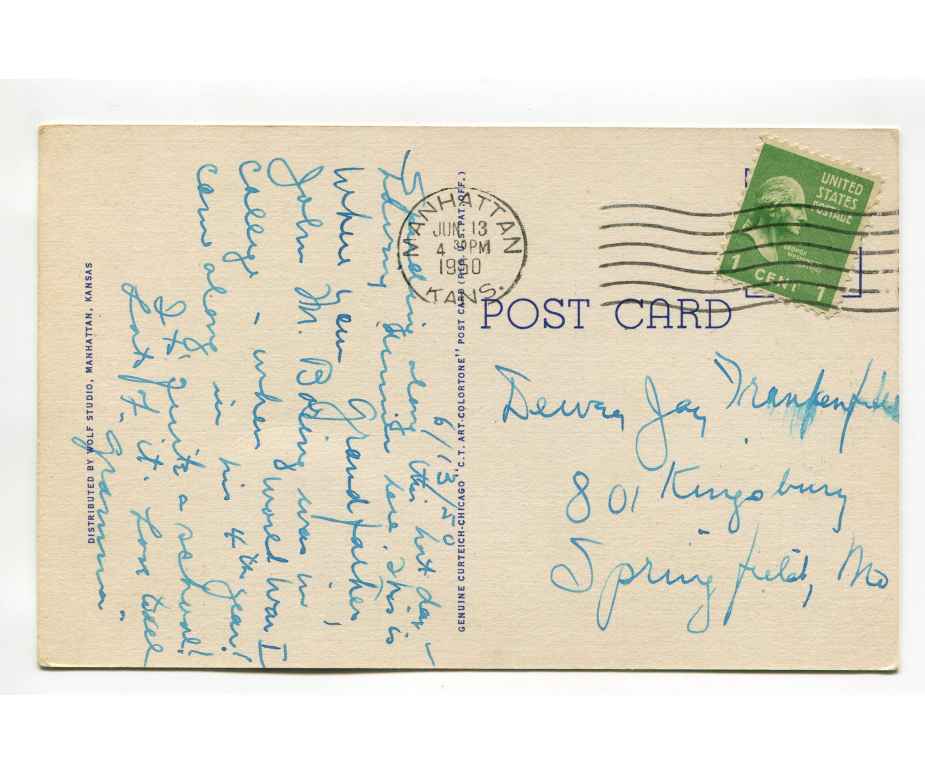 6/13/50
along this hot day –
dinner here. This is
Where your Grandfather,
John M. Boding was in
college – when World War I
came along in his 4th year!
It's quite a school!
Lost of it. Love
Gramma.
DISTRIBUTED BY WOLF STUDIO, MANHATTAN, KANSAS
GENUINE CURTEICH-CHICAGO "C.T. ART-COLORTONE" POST CARD (REG. U.S. PAT. OFF.)
MANHATTAN
JUN 13
4 30 PM
1950
KANS.
UNITED
STATES
POSTAGE
GEORGE
WASHINGTON
1 CENT 1
POST CARD
Dewey Jay Frankenfield
801 Kingsbury
Springfield, Mo